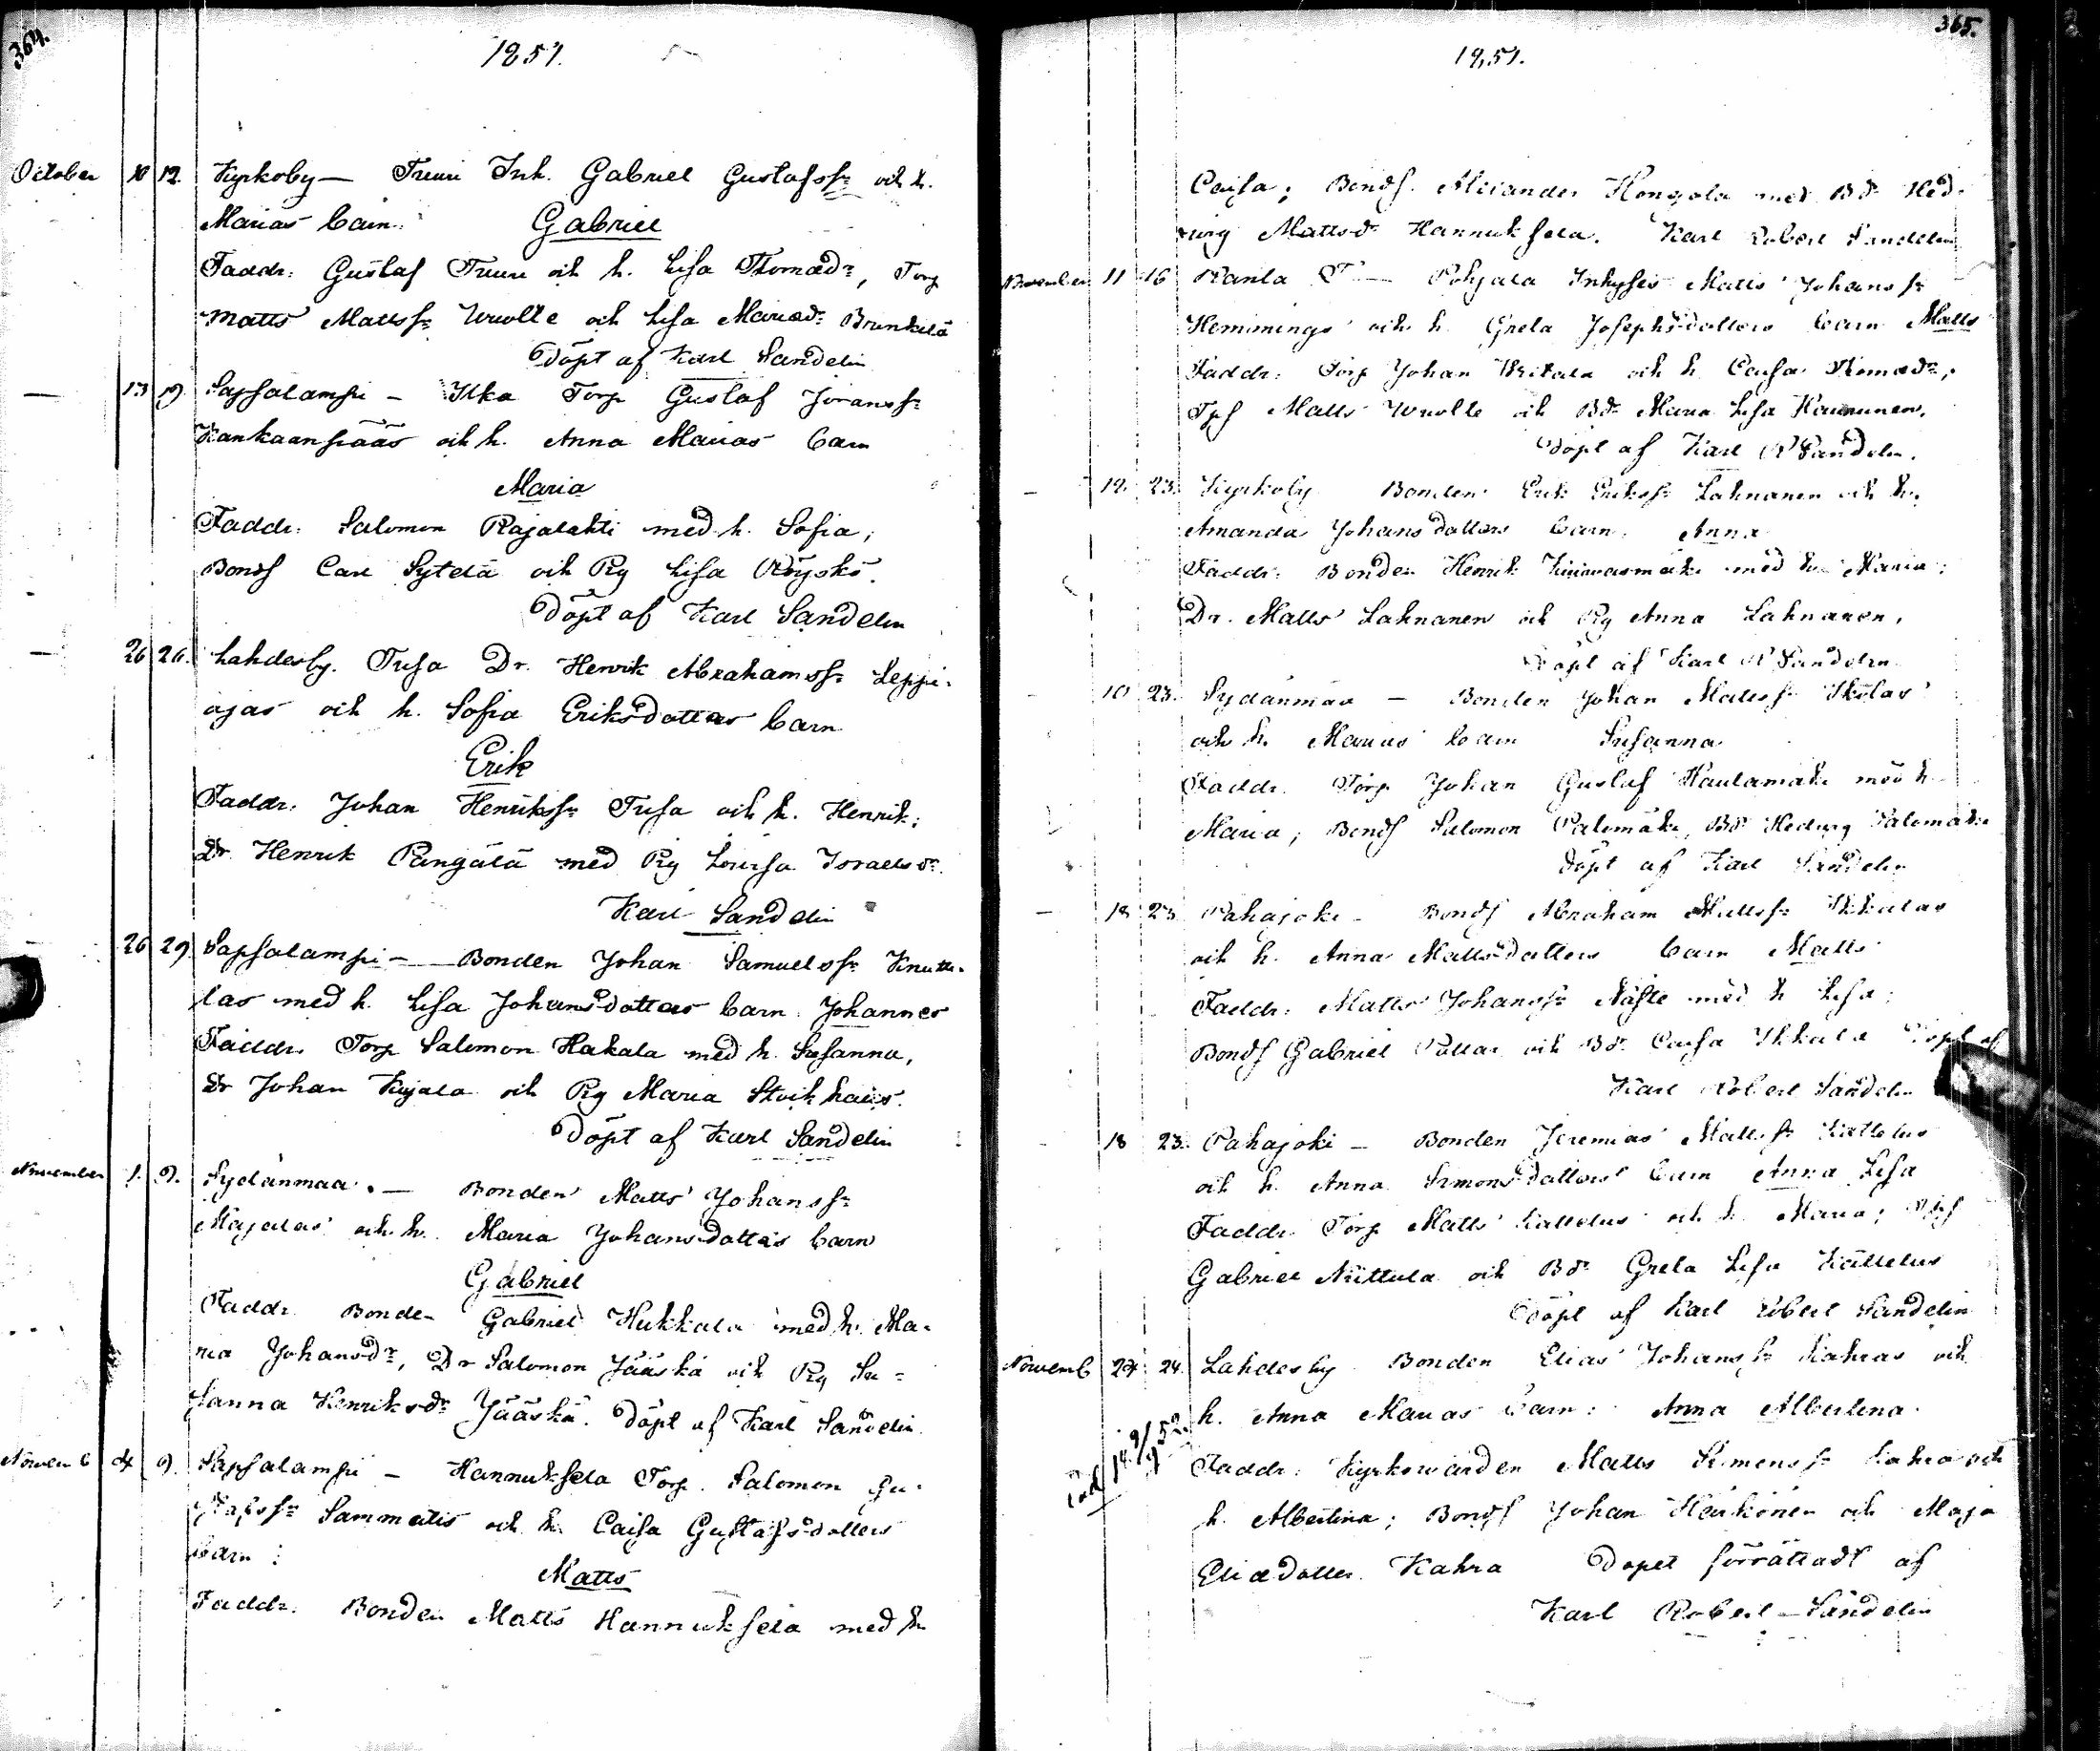 364.
1851.
October 10 12. Kyrkoby — Truu Inh. Gabriel Gustafss:n och h.
Marias barn: Gabriel
Faddr: Gustaf Truu och h. Lisa Thomæd:r, Torp
Matts Mattss:n Wuolle och Lisa Mariæd:r
Döpt af Karl Sandelin
— 13 19 Sapsalampi — Ilka Torp Gustaf Göranss:n
Kankaanpääs och h. Anna Marias barn
Maria
Faddr: Salomon Rajalahti med h. Sofia,
Bonds Carl Sytelä och Pig Lisa Röyskö.
Döpt af Karl Sandelin
— 26 26. Lahdesby. Tusa Dr. Henrik Abrahamss:n Leppi-
ojas och h. Sofia Eriksdotters barn
Erik
Faddr. Johan Henrikss:n Tusa och h. Henrik;
Dr. Henrik Pangätä med Pig Lovisa Israelsd:r.
Karl Sandelin
26 29 Sapsalampi — Bonden Johan Samuelss:n Knutti-
las med h. Lisa Johansdotters barn: Johannes
Faddr. Torp Salomon Hakala med h. Susanna,
Dr Johan Kujala och Pig Maria
Döpt af Karl Sandelin
November 1. 9. Sydänmaa. — Bonden Matts Johanss:n
Majalas och h. Maria Johansdotters barn
Gabriel
Faddr. Bonden Gabriel Hukkala med h. Ma-
ria Johansd:r, Dr Salomon Jääskä och Pig Su-
sanna Henriksd:r Jääskä. Döpt af Karl Sandelin
Novemb 4 9. Sapsalampi — Hannuksela Torp. Salomon Gu-
stafss:n Sammatis och h. Caisa Gustafsdotters
barn:
Matts
Faddr. Bonden Matts Hannuksela med h
365.
1851.
Caisa; Bonds. Alexander Hongola med Bd:r Hed-
wig Mattsd:r Hannuksela. Karl Robert Sandelin
November 11 16 Ranta T — Pohjala Inhyses Matts Johanss:n
Hemmings och h. Greta Josephsdotters barn Matts
Faddr: Torp Johan och h. Caisa Thomæd:r;
Tps Matts Wuolle och Bd:r Maria Lisa
Döpt af Karl R Sandelin.
— 12. 23. Kyrkoby Bonden Erik Erikss:n Lahnanen och h.
Amanda Johansdotters barn. Anna
Faddr: Bonden Henrik med h. Maria;
Dr. Matts Lahnanen och Pig Anna Lahnanen.
Döpt af Karl R Sandelin
— 10 23. Sydänmaa — Bonden Johan Mattss:n
och h. Marias barn Susanna
Faddr. Torp Johan Gustaf Hautamäki med h
Maria; Bonds Salomon Palomäki, Bd:r Hedwig Palomäki
Döpt af Karl Sandelin
— 18 23 Pahajoki — Bonds Abraham Mattss:n Ikkalas
och h. Anna Mattsdotters barn Matts
Faddr: Matts Johanss:n Nässe med h Lisa;
Bonds Gabriel och Bd:r Caisa Ikkala Döpt af
Karl Robert Sandelin
18 23. Pahajoki — Bonden Jeremias Mattss:n Kattelus
och h. Anna Simonsdotters barn Anna Lisa
Faddr. Torp Matts Kattelus och h. Maria; Tps
Gabriel Niittula och Bd:r Greta Lisa Kattelus
Döpt af Karl Robert Sandelin
Novemb 24 24. Lahdesby Bonden Elias Johanss:n Kahras och
h. Anna Marias barn: Anna Albertina.
Faddr: Kyrkowärden Matts Simonss:n Kahra och
h. Albertina; Bonds Johan Heikonen och Maja
Eliædotter Kahra Dopet förrättadt af
Karl Robert Sandelin